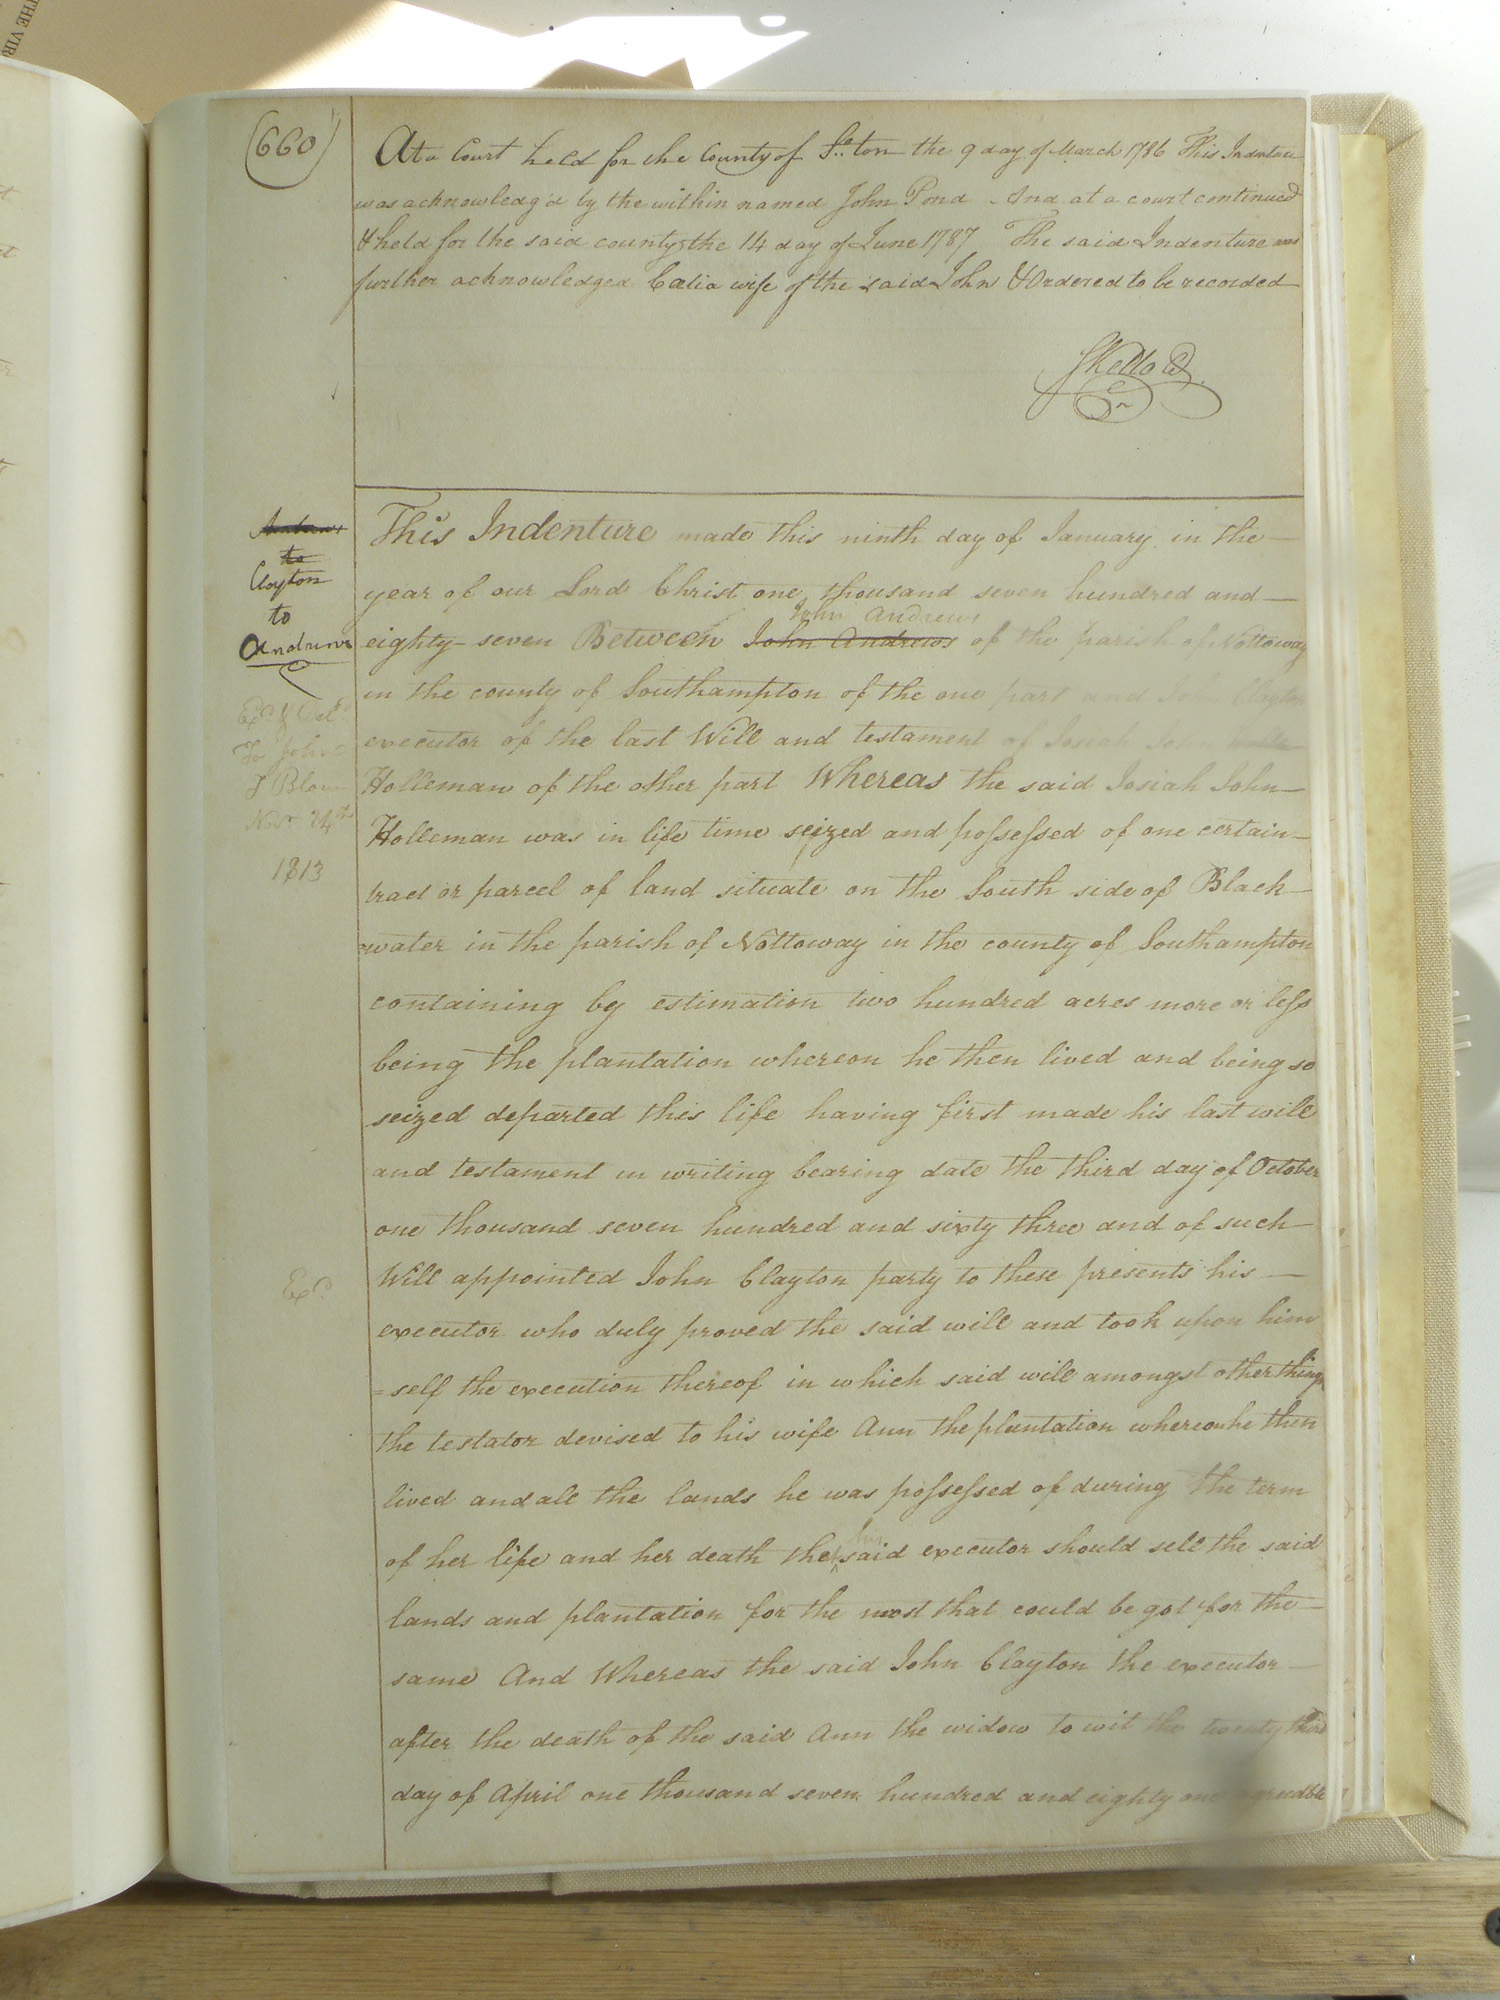 THE VIR
(660)
At a Court held for the County of So.ton the 9 day of March 1786 This Indenture
was acknowledg'd by the within named John Pond And at a court continued
& held for the said county the 14 day of June 1787 The said Indenture was
further acknowledged Celia wife of the said John & Ordered to be recorded
This Indenture made this ninth day of January in the
year of our Lord Christ one thousand seven hundred and
John Andrews
eighty-seven Between John Andrews of the parish of Nottoway
in the county of Southampton of the one part and John Clayton
executor of the last Will and testament of Josiah John
Holleman of the other part Whereas the said Josiah John
Holleman was in life time seized and possessed of one certain
tract or parcel of land situate on the South side of Black
water in the parish of Nottoway in the county of Southampton
containing by estimation two hundred acres more or less
being the plantation whereon he then lived and being so
seized departed this life having first made his last will
and testament in writing bearing date the third day of October
one thousand seven hundred and sixty three and of such
Will appointed John Clayton party to these presents his
executor who duly proved the said will and took upon him
=self the execution thereof in which said will amongst other things
the testator devised to his wife Ann the plantation whereon he then
lived and all the lands he was possessed of during the term
of her life and her death the said executor should sell the said
lands and plantation for the most that could be got for the
same And Whereas the said John Clayton the executor
after the death of the said Ann the widow to wit the twenty third
day of April one thousand seven hundred and eighty one agreeable
Andrews
to
Clayton
to
Andrews
Exd & Deld
To John
T Blow
Novr 24th
1813
Exd